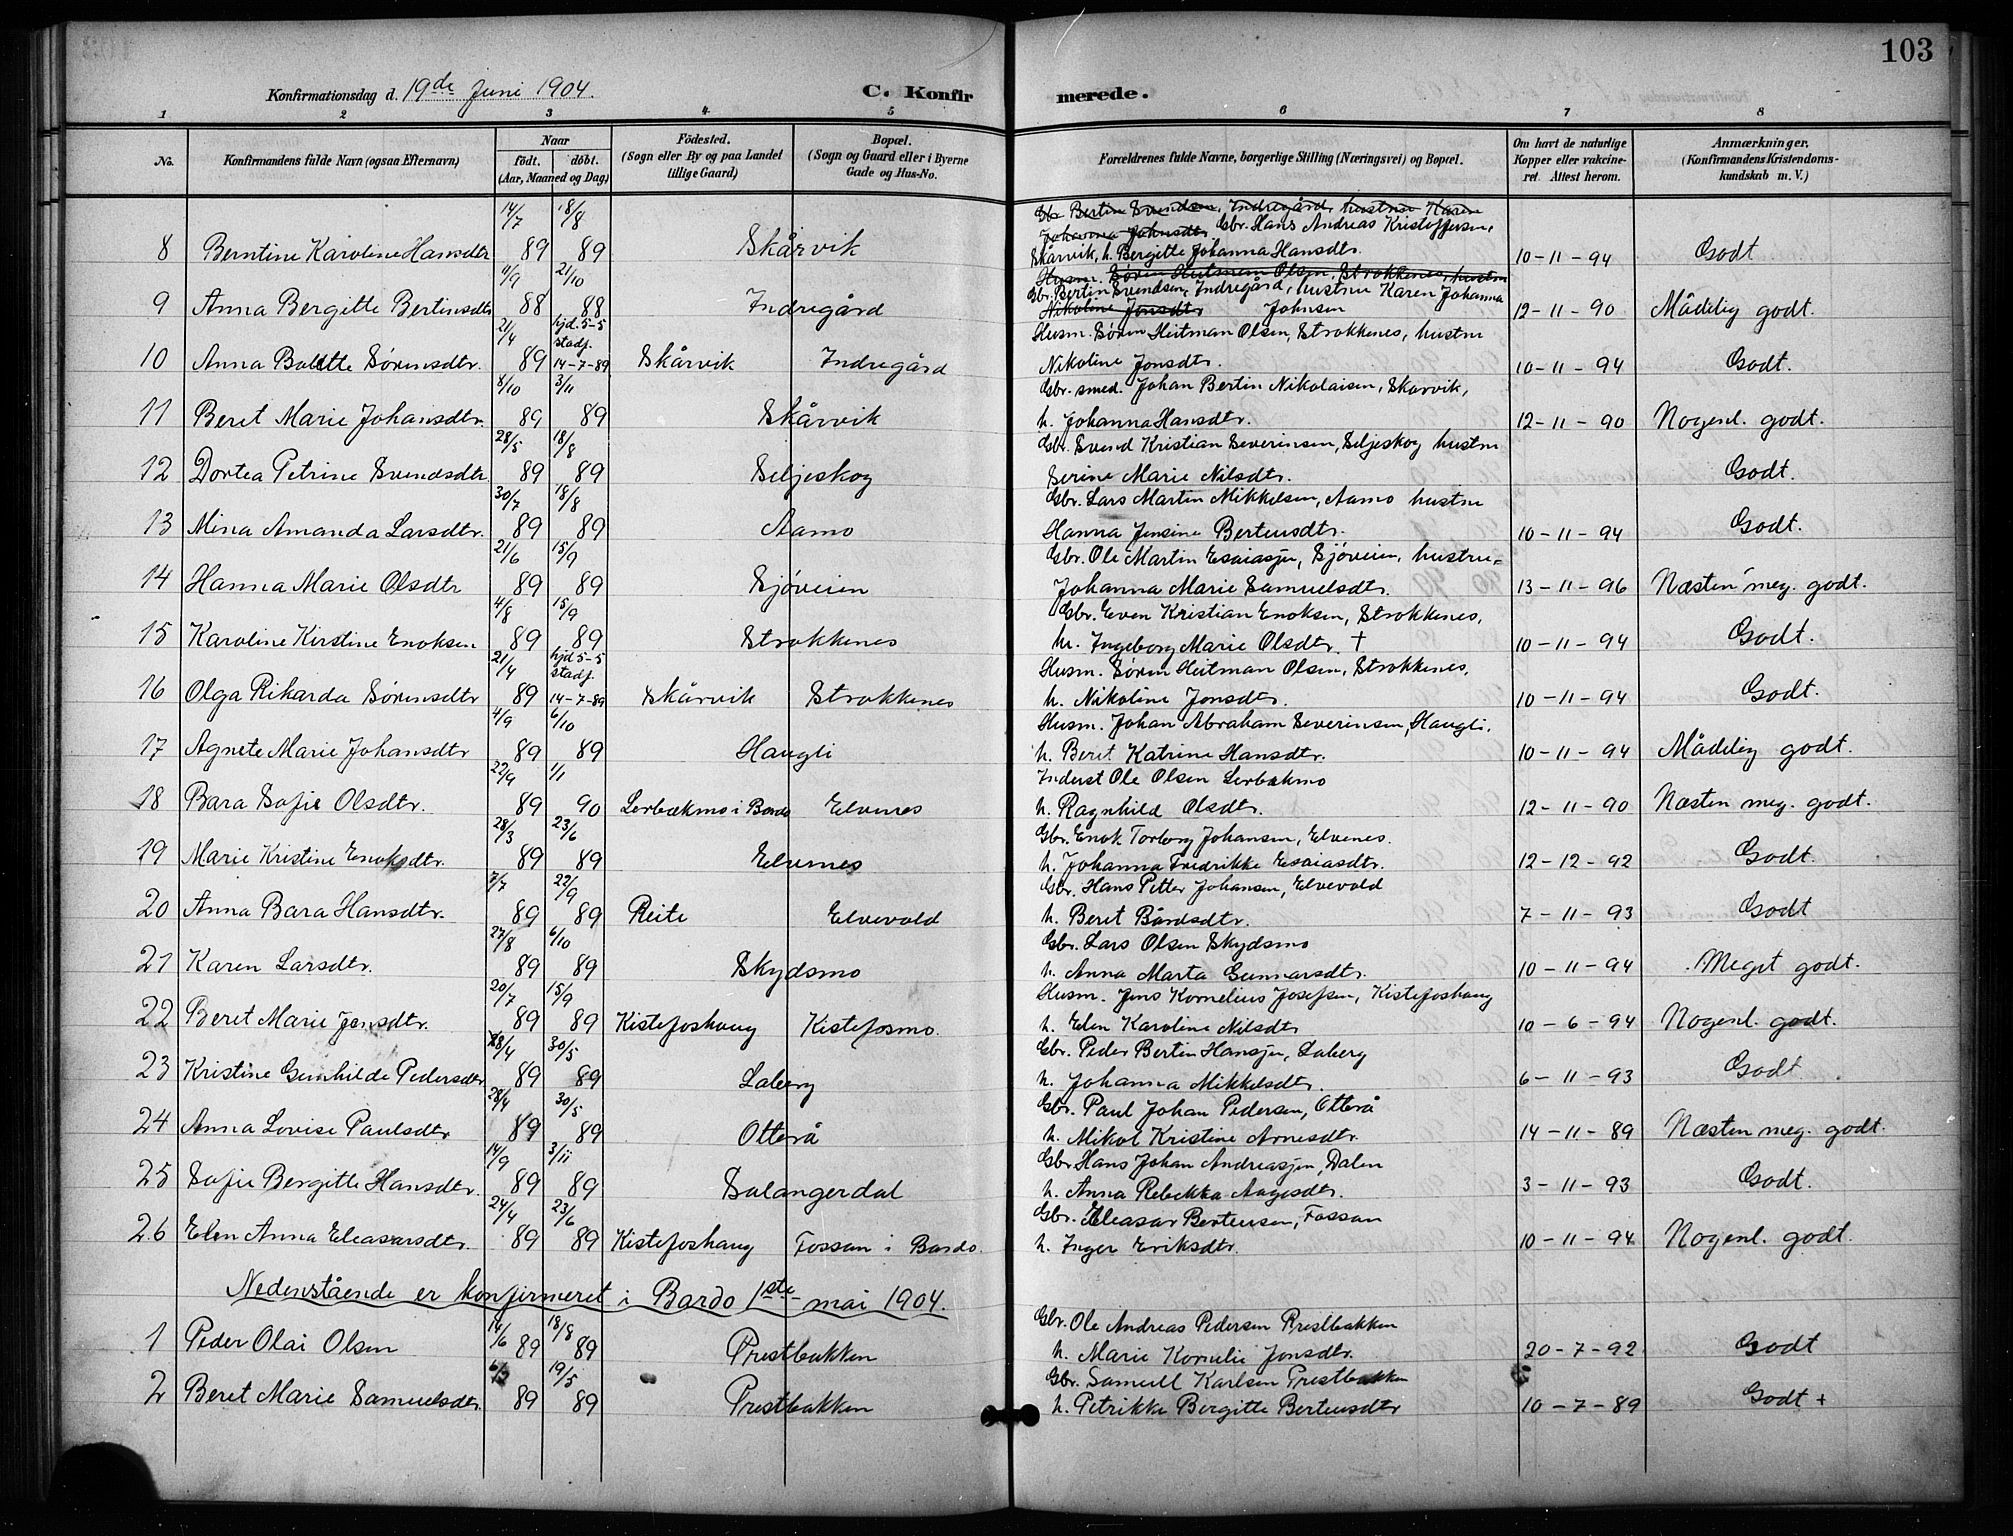 103
Konfirmationsdag d. 19de Juni 1904.
C. Konfirmerede.
1 2 3 4 5 6 7 8
No.
Konfirmandens fulde Navn (ogsaa Efternavn)
Naar
født. døbt.
(Aar, Maaned og Dag)
Fødested.
(Sogn eller By og paa Landet
tillige Gaard)
Bopæl.
(Sogn og Gaard eller i Byerne
Gade og Hus-No.
Forældrenes fulde Navne, borgerlige Stilling (Næringsvei) og Bopæl.
Om havt de naturlige
Kopper eller vakcine-
ret. Attest herom.
Anmærkninger.
(Konfirmandens Kristendoms-
kundskab m. V.)
14/7 18/8 Gbr. Bertin Svendsen, Indregård, hustru Karen
Johanna Johnsdtr. Gbr. Hans Andreas Kristoffersen,
8 Berntine Karoline Hansdtr 89 89 Skårvik Skårvik, h. Bergitte Johanna Hansdtr. 10-11-94 Godt
11/9 21/10 Husm. Sören Heitman Olsen, Strokkenes, hustru
Gbr. Bertin Svendsen, Indregård, hustru Karen Johanna
9 Anna Bergitte Bertinsdtr 88 88 Indregård Nikoline Jonsdtr Johnsen 12-11-90 Mådelig godt.
21/4 hjd. 5-5 stadf. Husm. Sören Heitman Olsen, Strokkenes, hustru
10 Anna Bolette Sörensdtr. 89 14-7-89 Skårvik Indregård Nikoline Jonsdtr. 10-11-94 Godt.
8/10 3/11 Gbr. smed. Johan Bertin Nikolaisen, Skarvik,
11 Beret Marie Johansdtr. 89 89 Skårvik h. Johanna Hansdtr. 12-11-90 Nogenl. godt.
28/5 18/8 Gbr. Svend Kristian Severinsen, Seljeskog hustru
12 Dortea Petrine Svendsdtr 89 89 Seljeskog Serine Marie Nilsdtr. Godt.
30/7 18/8 Gbr. Lars Martin Mikkelsen, Aamo hustru
13 Mina Amanda Larsdtr. 89 89 Aamo Hanna Jensine Berteusdtr. 10-11-94 Godt.
21/6 15/9 Gbr. Ole Martin Esaiassen, Sjöveien, hustru=
14 Hanna Marie Olsdtr 89 89 Sjöveien Johanna Marie Samuelsdtr. 13-11-96 Næsten meg. godt.
4/8 15/9 Gbr. Even Kristian Enoksen, Strokkenes,
15 Karoline Kirstine Enoksen 89 89 Strokkenes h. Ingeborg Marie Olsdtr. † 10-11-94 Godt.
21/4 hjd 5-5 stadf. Husm. Sören Heitman Olsen, Strokkenes,
16 Olga Rikarda Sörensdtr 89 14-7-89 Skårvik Strokkenes h. Nikoline Jonsdtr. 10-11-94 Godt.
4/9 6/10 Husm. Johan Abraham Severinsen, Haugli.
17 Agnete Marie Johansdtr 89 89 Haugli h. Beret Katrine Hansdtr. 10-11-94 Mådelig godt.
22/9 1/1 Inderst Ole Olsen Lerbækmo
18 Bara Sofie Olsdtr. 89 90 Lerbækmo i Bardo Elvenes h. Ragnhild Olsdtr. 12-11-90 Næsten meg. godt.
28/3 23/6 Gbr. Enok Torberg Johansen, Elvenes.
19 Marie Kristine Enoksdtr. 89 89 Elvenes h. Johanna Fredrikke Esaiasdtr. 12-12-92 Godt.
7/7 22/9 Gbr. Hans Petter Johansen, Elvevold
20 Anna Bara Hansdtr. 89 89 Reite Elvevold h. Beret Bårdsdtr. 7-11-93 Godt
27/8 6/10 Gbr. Lars Olsen Skydsmo
21 Karen Larsdtr. 89 89 Skydsmo h. Anna Marta Gunnarsdtr. 10-11-94 Meget godt.
20/7 15/9 Husm. Jens Kornelius Josefsen, Kistefoshaug
22 Beret Marie Jensdtr. 89 89 Kistefoshaug Kistefosmo. h. Elen Karoline Nilsdtr 10-6-94 Nogenl. godt.
28/4 30/5 Gbr. Peder Bertin Hanssen, Laberg
23 Kristine Gunhilde Pedersdtr 89 89 Laberg h. Johanna Mikkelsdtr. 6-11-93 Godt.
28/4 30/5 Gbr. Paul Johan Pedersen, Otterå
24 Anna Lovise Paulsdtr 89 89 Otterå h. Mikol Kristine Arnesdtr. 14-11-89 Næsten meg. godt.
14/9 3/11 Gbr Hans Johan Andreassen, Dalen
25 Sofie Bergitte Hansdtr. 89 89 Salangerdal h. Anna Rebekka Aagesdtr. 3-11-93 Godt.
24/4 23/6 Gbr. Eleasar Berteusen, Fossan
26 Elen Anna Eleasarsdtr. 89 89 Kistefoshaug Fossan i Bardo. h. Inger Eriksdtr. 10-11-94 Nogenl. godt.
Nedenstående er konfirmeret i Bardo 1ste mai 1904.
14/6 18/8 Gbr. Ole Andreas Pedersen Prestbakken
1 Peder Olai Olsen 89 89 Prestbakken h. Marie Kornelie Jonsdtr. 20-7-92 Godt
19/5 Gbr. Samuel Karlsen Prestbakken
2 Beret Marie Samuelsdtr. 89 89 Prestbakken h. Petrikke Bergitte Berteusdtr 10-7-89 Godt +